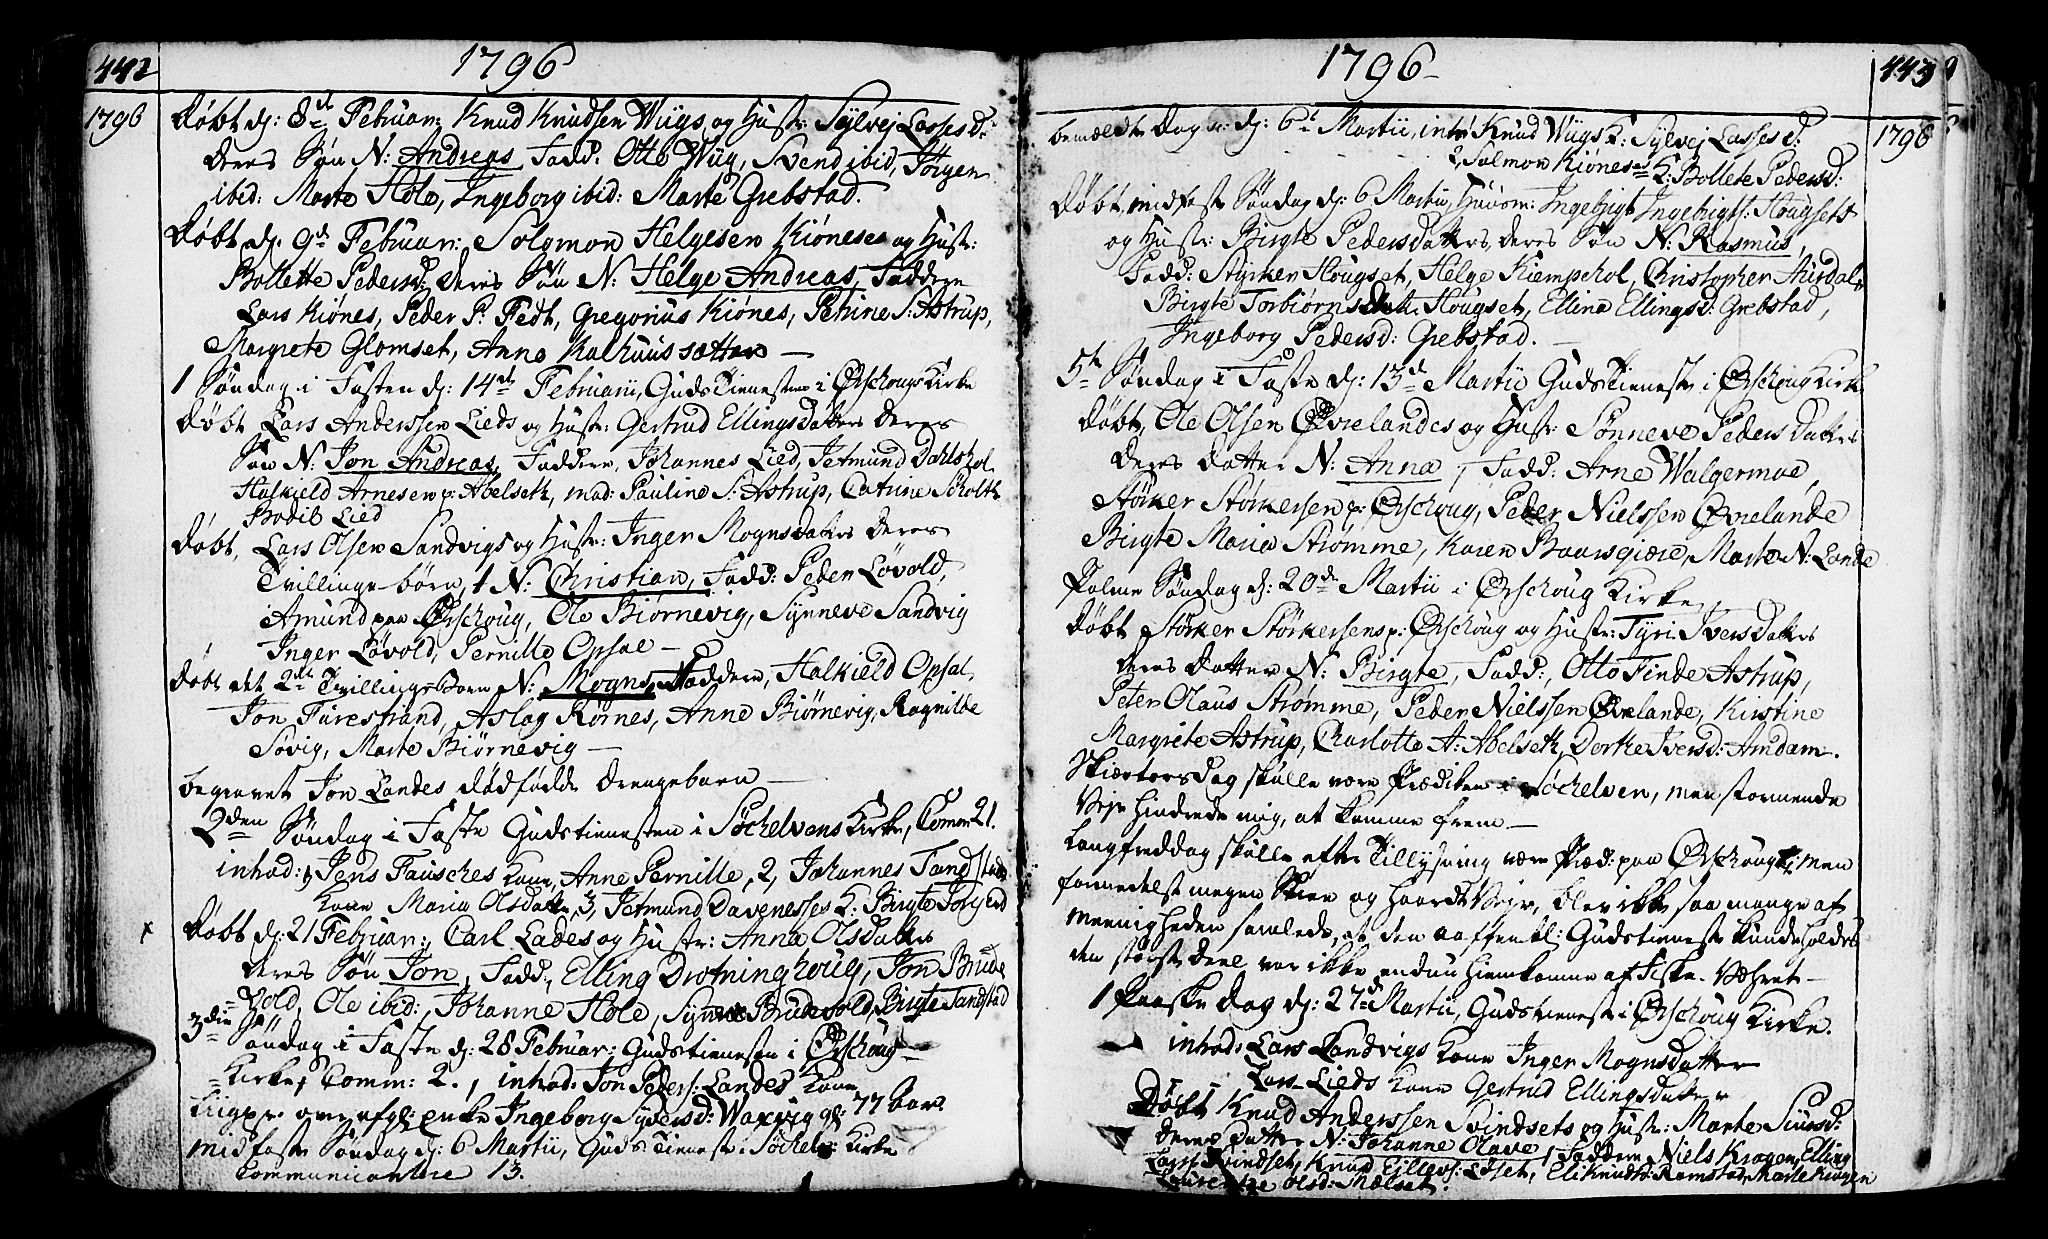 442
1796
1796
Døbt d: 8de Februar: Knud Knudsen Wiigs og Hustr: Sylvej Lasses d:
deres Søn N: Andreas Fadd: Otto Wiig, Svend ibid, Jørgen
ibid: Marte Hole, Ingeborg ibid: Marte Grebstad.
Døbt d. 9de Februar: Solomon Helgesen Kiønes og Hustr:
Bollette Pedersd: deres Søn N: Helge Andreas, Faddere
Lars Kiønes, Peder P: Fedt, Gregorius Kiønes, Petrine S: Astrup,
Margrete Glomset, Anne Kalhuussætter —
1 Søndag i Fasten d: 14de Februarii, Guds Tienesten i Ørschougs Kirke
Døbt Lars Anderssen Lieds og Hustr: Gertrud Ellingsdatters deres
Søn N: Jon Andreas, Faddere, Johannes Lied, Jetmund Dahlshol
Halkield Arnesen p: Abelseth, mad: Pauline S: Astrup, Catrine Sioholt
Bodil Lied
Døbt, Lars Olsen Sandvigs og Hustr: Inger Mognsdatters deres
Tvillinge-børn, 1 N: Christian, Fadd: Peder Løvold,
Amund paa Ørschoug, Ole Biørnevig, Synneve Sandvig
Inger Løvold, Pernille Opsal —
Døbt det 2det Tvillings-Barn N: Mogns, Faddere, Halkield Opsal
Jon Furestrand, Aslag Rørnes, Anne Biørnevig, Ragnilde
Sovig, Marte Biørnevig —
begravet Jon Landes dødfødde Drengebarn —
2den Søndag i Faste Gudstienesten i Søchelvens Kirke, Comm 21.
introd: 1, Jens Fausches Kone, Anne Pernille, 2, Johannes Tandstads
Kone Maria Olsdatter, 3, Jetmund Davenesses K: Birgte
Døbt d: 21 Februar: Carl Lades og Hustr: Anna Olsdatters
deres Søn Jon, Fadd: Elling Drotninghoug, Jon Brude
vold, Ole ibid:, Johanne Hole, Synneve Brudevold, Birgte Tandstad
3die Søndag i Faste d: 28 Februar: Gudstienesten i Ørschoug
Kirke, Comm: 2., introd: Jon Peders: Landes Kone
Liigpr. over afgl: enke Ingeborg Syversd: Waxvig gl: 77 aar.
midfaste Søndag d: 6 Martii, Guds Tienest: Søchelv: Kirke
Communicantere 13.
1796
443
1796
bemældte Dag d: 6te Martii, intr: Knud Wiigs K: Sylvej Lasses d:
2, Salmon Kiønes K: Bollete Pedersd:
Døbt midfaste Søndag d: 6 Martii, Huusm: Ingebrigt Ingebrigts: Hougsets
og Hustr: Birgte Pedersdatters, deres Søn N: Rasmus,
Fadd: Styrker Hougset, Helge Kiempehol, Christopher
Birgte Torbiørnsdatt: Hougset, Elline Ellingsd: Grebstad,
Ingeborg Pedersd: Grebstad. —
5te Søndag i Faste d: 13de Martii Guds Tieneste i Ørschoug Kirke
Døbt, Ole Olsen Øvrelandes og Hustr: Sønneve Pedersdatters
deres Datter N: Anna, Fadd: Arne Walgermoe,
Størker Størkersen p: Ørschoug, Peder Nielssen Øvrelande
Birgte Maria Strømme, Karen Baarsgiære, Marte N: Lande
Palme Søndag d: 20de Martii i Ørschoug Kirke,
Døbt Størker Størkersens p: Ørschoug og Hustr: Tyri Iversdatters
deres Datter N: Birgte, Fadd:, Otto Finde Astrup,
Peter Claus Strømme, Peder Nielssen Øvrelande, Kirstine
Margrete Astrup, Charlotte A: Abelseth, Dorthe Iversd: Amdam.
Skiærtorsdag skulle være Prædiken i Søchelven, men stormende
Vejr hindrede mig, at komme frem —
Langfreddag skulle efter Tillysning være Præd: paa Ørschoug, men
formedelst megen Snee og haardt Vejr, blev ikke saa mange af
Meenigheden samlede, at den aaffentl: Gudstieneste kunde holdes
den største deel var ikke endnu hiemkomne af Fiske-Været —
1 Paaske Dag d: 27de Martii, Gudstienest i Ørschoug Kirke.
introd: Lars Sandvigs Kone Inger Mognsdatter
Lars Lieds Kone Gertrud Ellingsdatter
Døbt Knud Anderssen Svindsets og Hustr: Marte Siursd:
deres Datter N: Johanne Olave, Faddere Niels Kragen, Elling
Svindset, Knud Eillevs: Løset, Eli Knudsd: Ramstad, Marte Kragen
Olsd: Mælset.